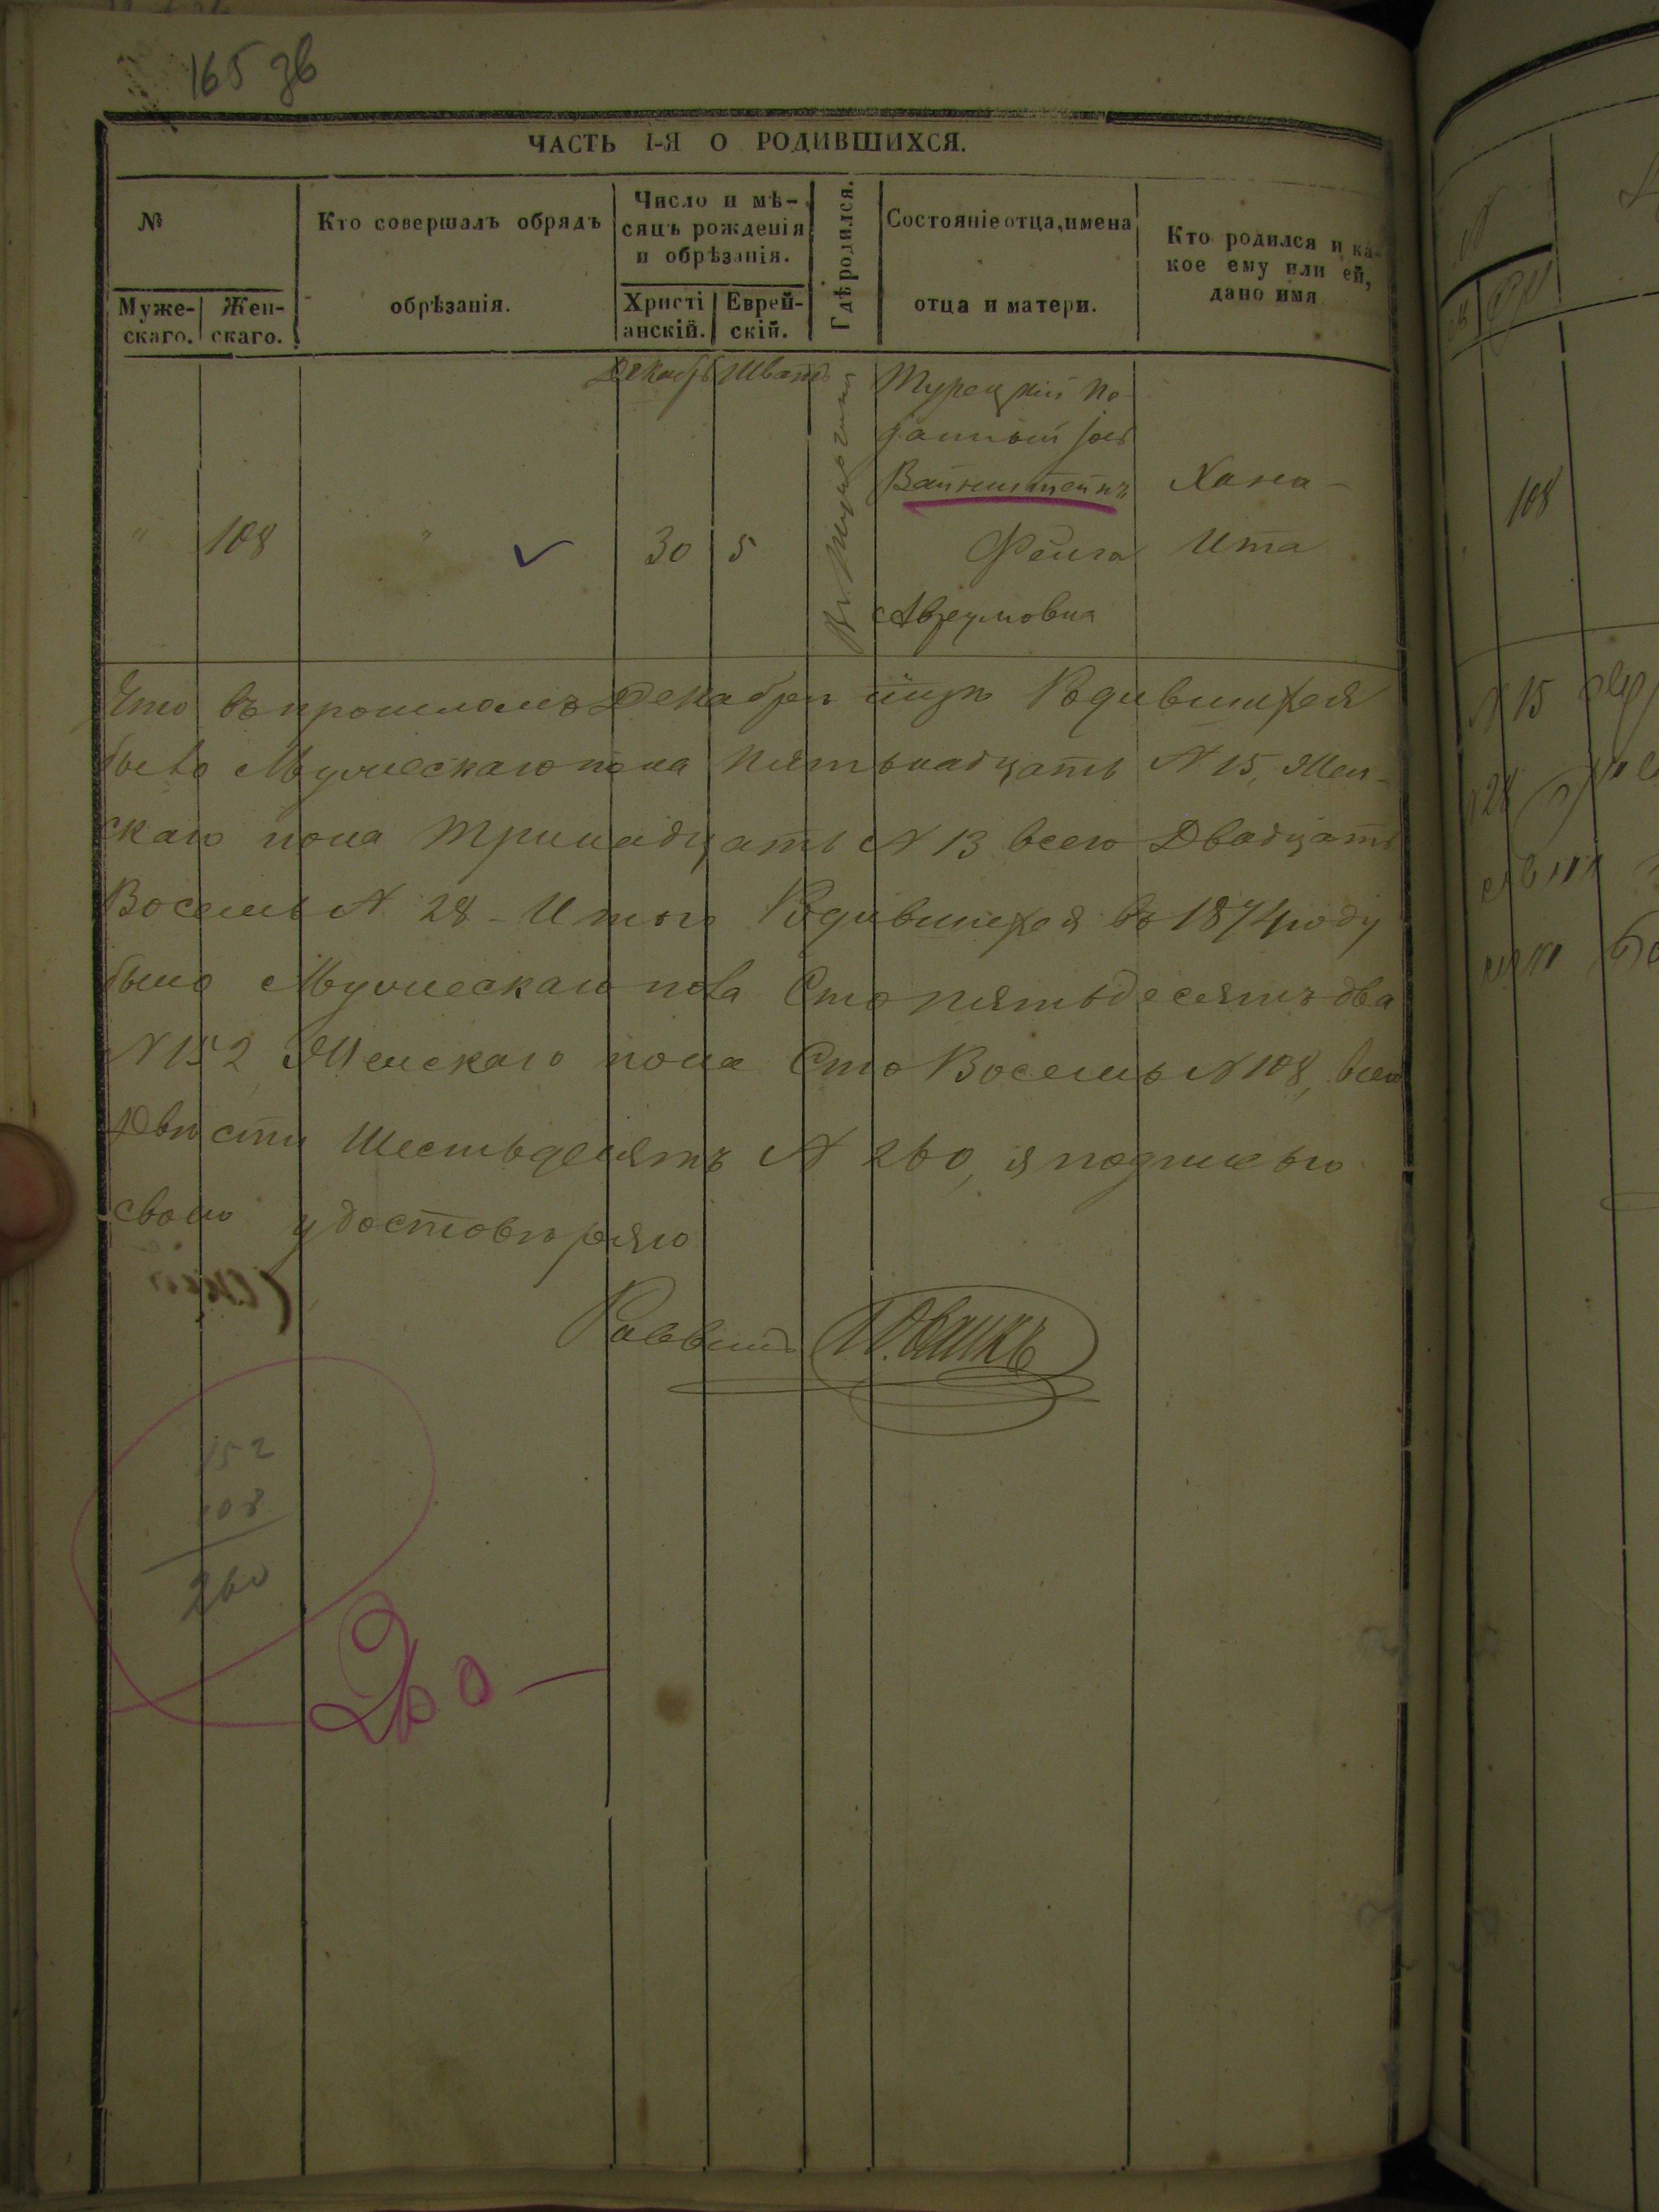 165 зв
ЧАСТЬ I-Я О РОДИВШИХСЯ.
№
Муже-
скаго.
Жен-
скаго.
Кто совершалъ обрядъ
обрѣзанія.
Число и мѣ-
сяцъ рожденія
и обрѣзанія.
Христі
анскій.
Еврей-
скій.
Гдѣ родился.
Состояніе отца, имена
отца и матери.
Кто родился и ка-
кое ему или ей,
дано имя
Декабрь Шватъ
"
108
"
30
5
Турецкій по-
данный
Вайнштейнъ
Фейга
Аврумовна
Хана -
Ита
Что въ прошломъ Декабрѣ Родившихся
было Мужескаго пола пятьнадцать N 15, Жен-
скаго пола тринадцать N 13 всего Двадцать
Восемь N 28 - Итого Родившихся въ 1874 году
было Мужескаго пола Сто пятьдесятъ два
N 152 Женскаго пола Сто Восемь N 108, всего
Двѣсти Шестьдесятъ N 260, я подписью
своею удостовѣряю
Раввинъ
152
108
260
260 -
108
N 15
28